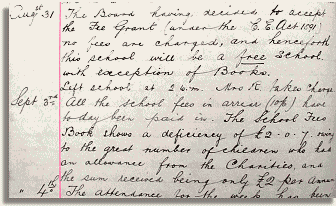 Augst 31 The Board having decided to accept
the Fee Grant (under the E. E. Act 1891)
no fees are charged, and henceforth
this school will be a free School.
with exception of Books.
Left school at 2 Mrs K. takes charge
Sept 3rd All the school fees in arrear (10/-) have
to day been paid in. The School Fees
Book shows a deficiency of £2.0.7. owing
to the great number of children who has
an allowance from the Charities, and
the sum received being only £2 per Annum
" 4th The Attendance for the week has been